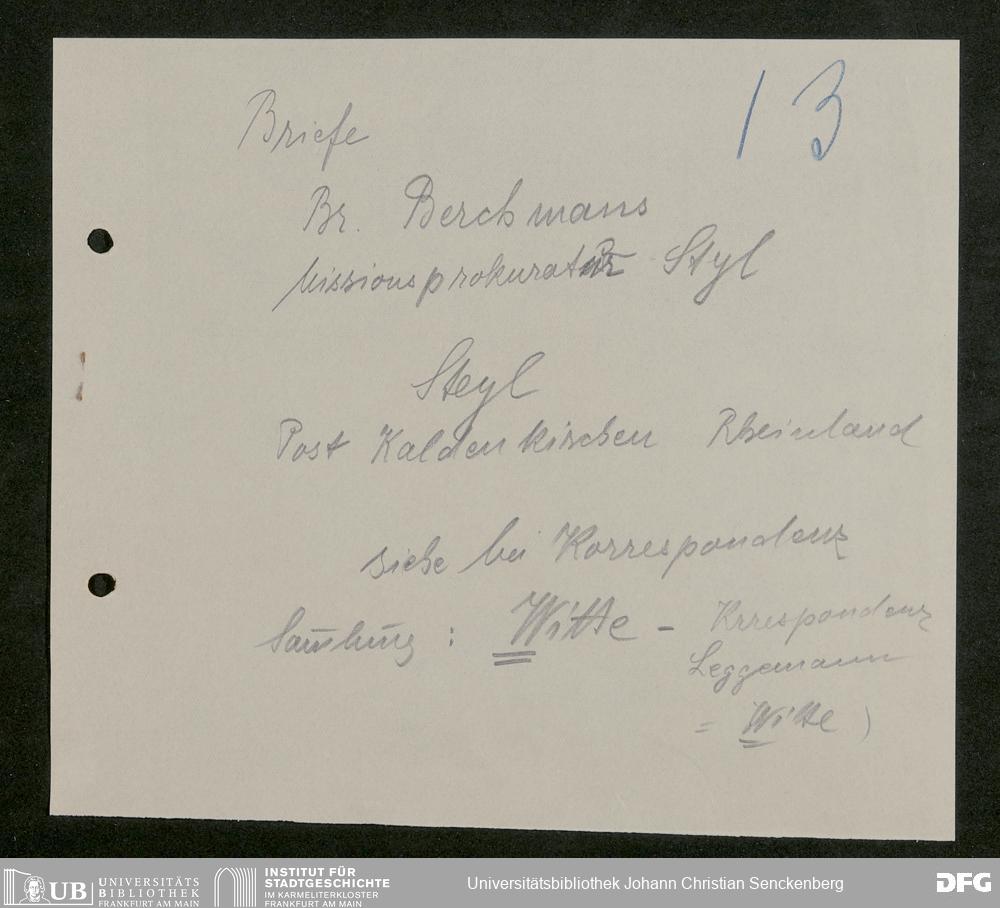 13
Briefe
Br. Berchmans
Missionsprokuratur Styl
Steyl
Post Kaldenkirchen Rheinland
siehe bei Korrespondenz
Sam̅lung : Witte - Krrespondenz
Leggemann
= Witte )
UB UNIVERSITÄTS
BIBLIOTHEK
FRANKFURT AM MAIN
INSTITUT FÜR
STADTGESCHICHTE
IM KARMELITERKLOSTER
FRANKFURT AM MAIN
Universitätsbibliothek Johann Christian Senckenberg
DFG